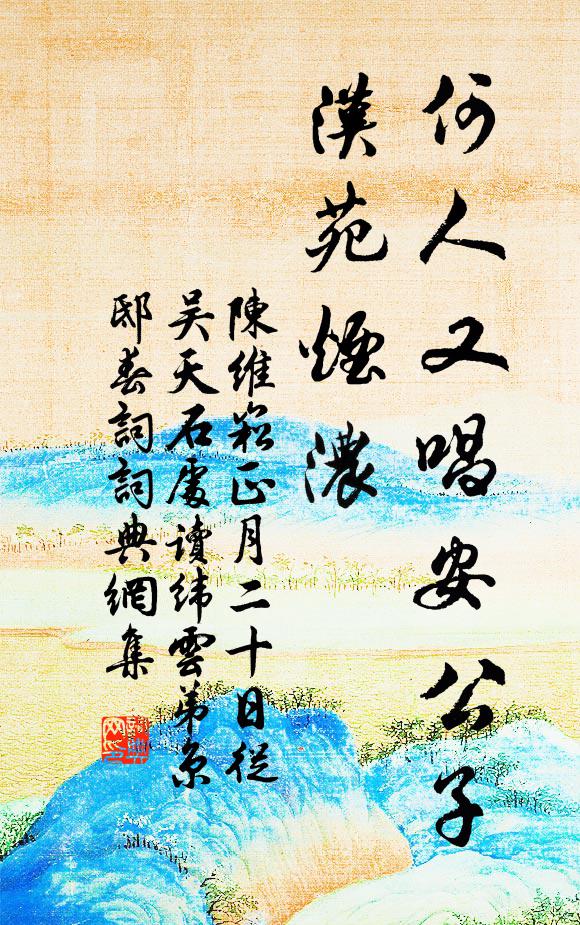 何人又唱安公子
漢苑煙濃
陳維崧正月二十日從
吴天石處讀緯雲弟京
邸春詞詞典網集